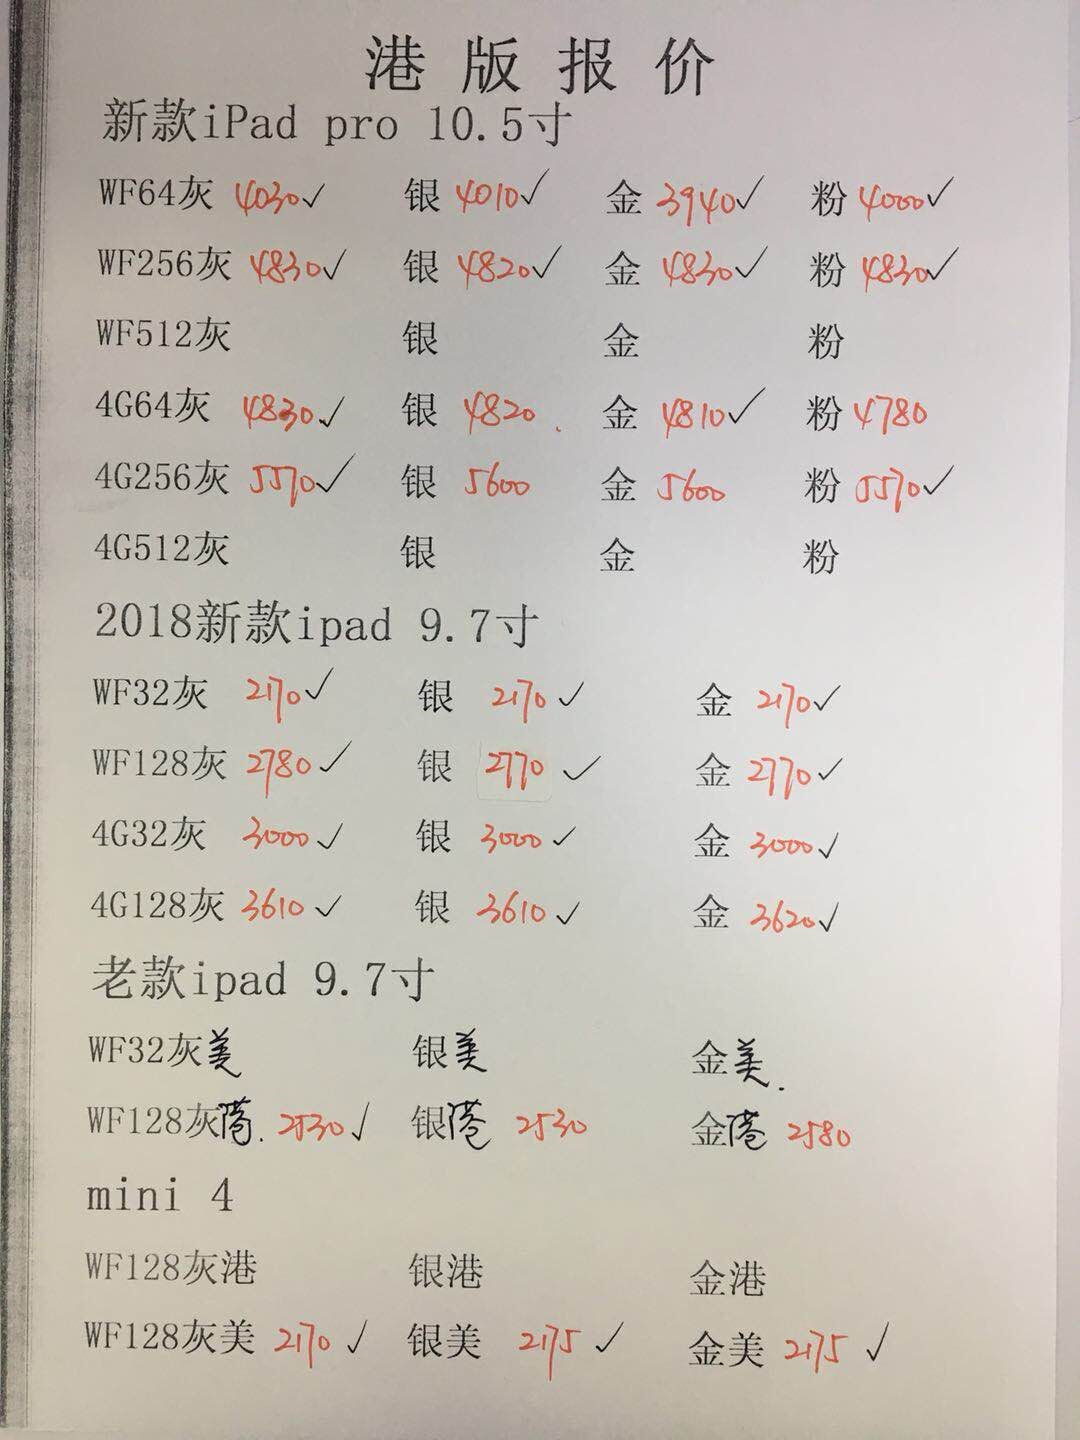 港版报价
新款iPad pro 10.5寸
WF64灰 4030✓ 银 4010✓ 金 3940✓ 粉 4000✓
WF256灰 4830✓ 银 4820✓ 金 4830✓ 粉 4830✓
WF512灰 银 金 粉
4G64灰 4830✓ 银 4820. 金 4810✓ 粉 4780
4G256灰 5570✓ 银 5600 金 5600 粉 5570✓
4G512灰 银 金 粉
2018新款ipad 9.7寸
WF32灰 2170✓ 银 2170✓ 金 2170✓
WF128灰 2780✓ 银 2770✓ 金 2770✓
4G32灰 3000✓ 银 3000✓ 金 3000✓
4G128灰 3610✓ 银 3610✓ 金 3620✓
老款ipad 9.7寸
WF32灰美 银美 金美.
WF128灰港. 2530✓ 银港 2530 金港 2580
mini 4
WF128灰港 银港 金港
WF128灰美 2170✓ 银美 2175✓ 金美 2175✓